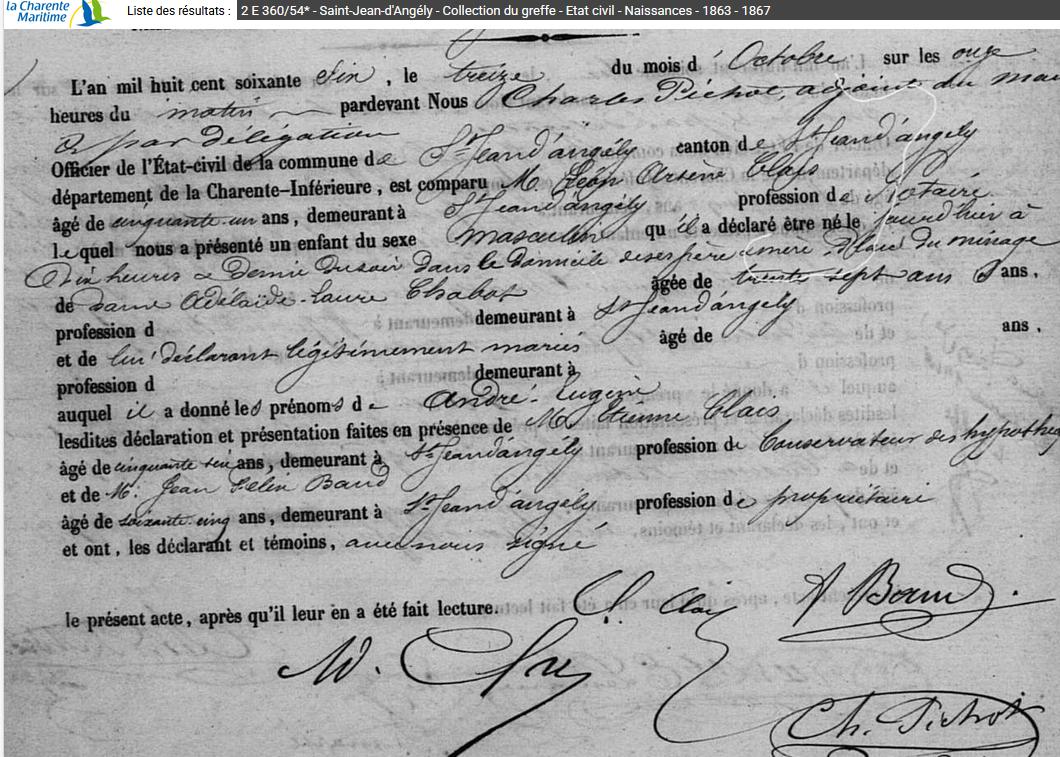 la Charente
Maritime
Liste des résultats : 2 E 360/54* - Saint-Jean-d'Angély - Collection du greffe - Etat civil - Naissances - 1863 - 1867
L'an mil huit cent soixante six, le treize du mois d'Octobre sur les onze
heures du matin pardevant Nous Charles Pichot, adjoint du mai
re par délégation
Officier de l'État-civil de la commune de St Jean d'angély canton de St Jean d'angély
département de la Charente-Inférieure, est comparu M. Léon Arsène Clais
âgé de cinquante un ans, demeurant à St Jean d'angély profession de notaire
lequel nous a présenté un enfant du sexe masculin qu'il a déclaré être né le jourd'hier à
dix heures & demie du soir dans le domicile de ses père & mère Place du minage
de dame Adélaïde-Laure Chabot âgée de trente sept ans ans,
profession d demeurant à St Jean d'angély
et de lui déclarant légitimement mariés âgé de ans,
profession d demeurant à
auquel il a donné les prénoms de André-Eugène
lesdites déclaration et présentation faites en présence de M. Etienne Clais
âgé de cinquante six ans, demeurant à St Jean d'angély profession de Conservateur des hypothè
et de M. Jean Felix Baud
âgé de soixante cinq ans, demeurant à St Jean d'angély profession de propriétaire
et ont, les déclarant et témoins, avec nous signé
le présent acte, après qu'il leur en a été fait lecture.
Baud
Ch. Pichot